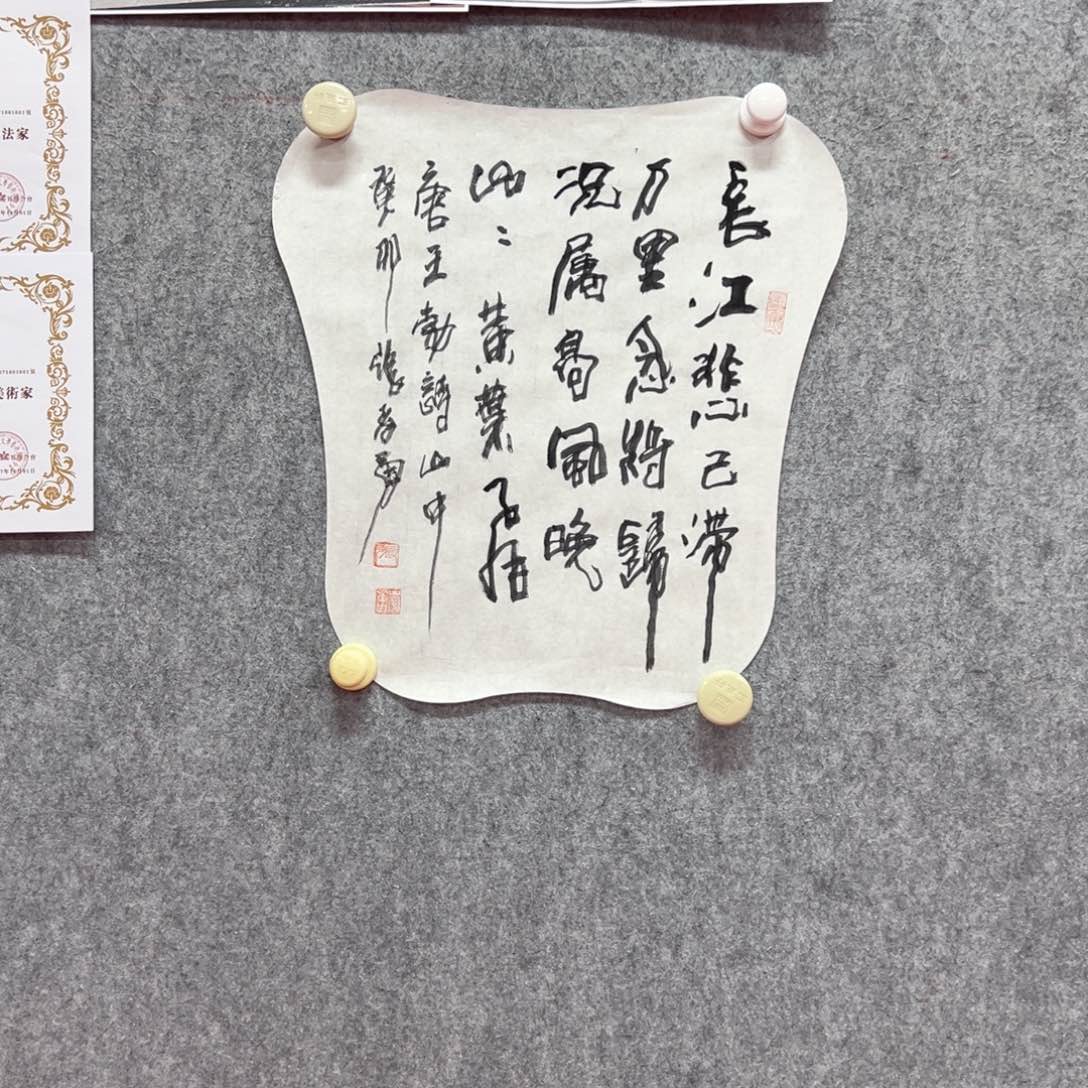 長江悲已滞
万里念将歸
況屬高風晚
山〻黃葉飛
唐王勃詩山中
癸卯
法家
美術家